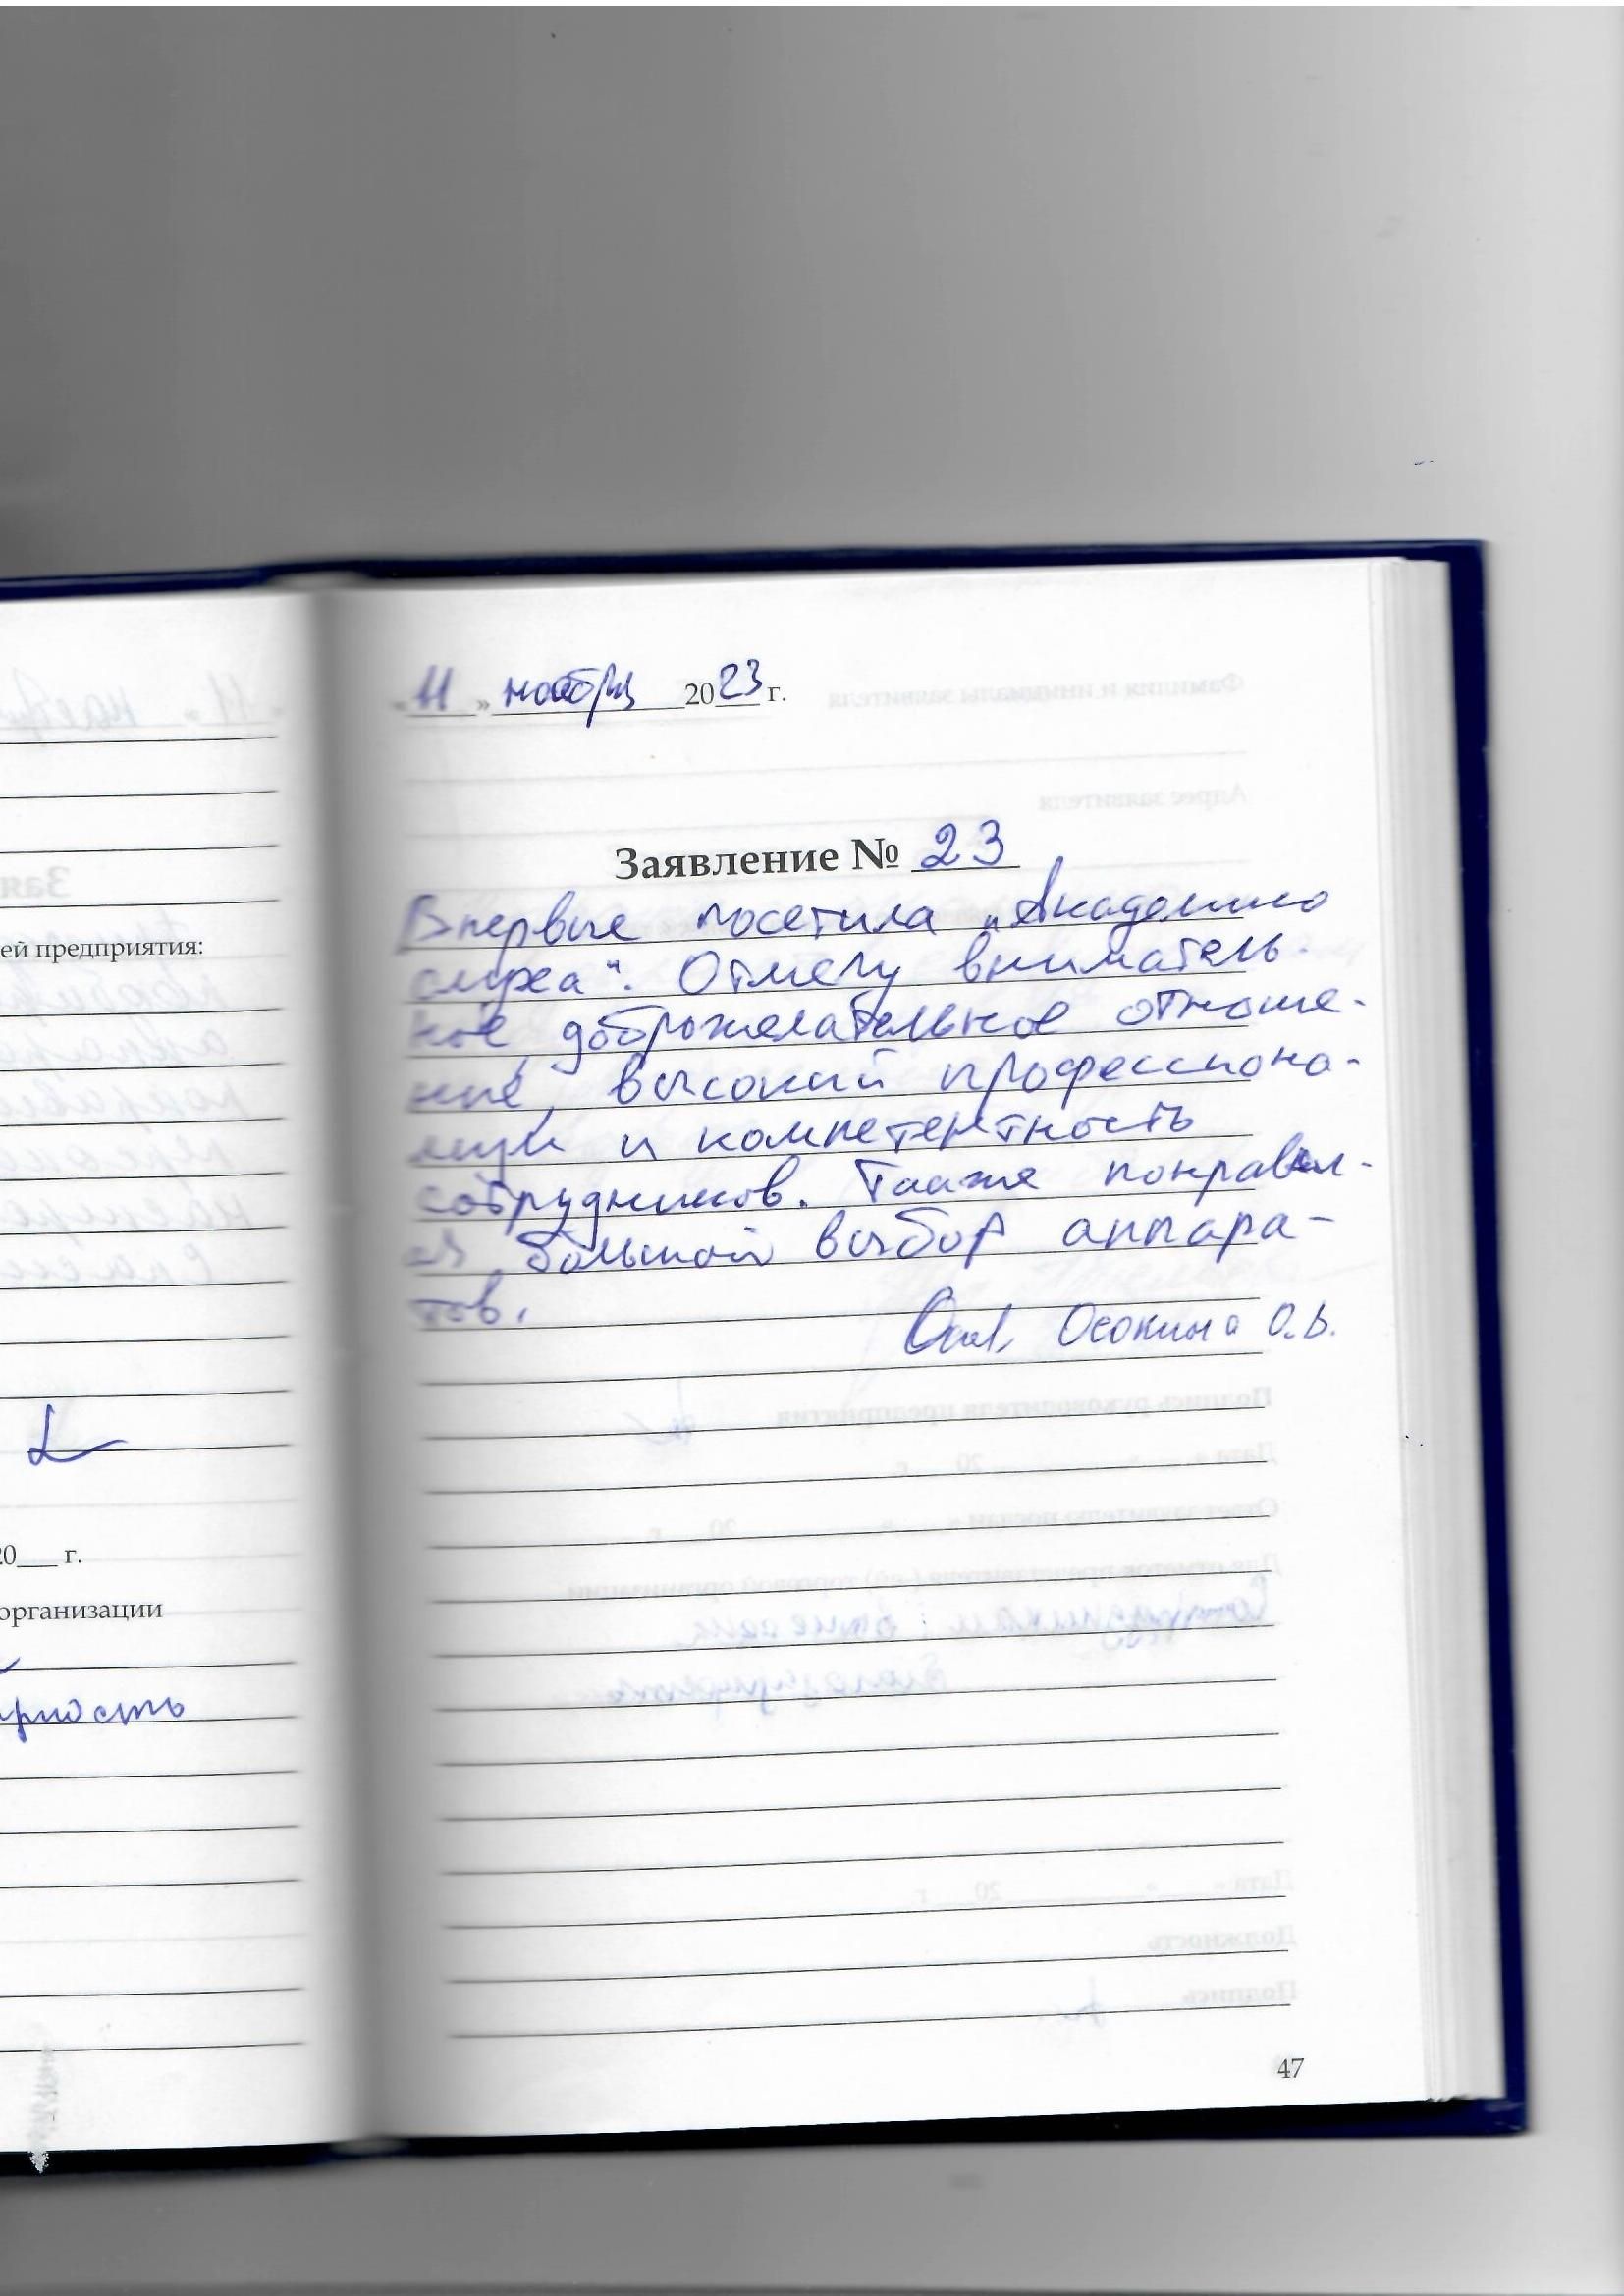 ей предприятия:
20___ г.
организации
рность
«11» ноября 2023 г.
Заявление № 23
Впервые посетила „Академию
слуха“. Отмечу вниматель-
ное, доброжелательное отноше-
ние, высокий профессиона-
лизм и компетентность
сотрудников. Также понравил-
ся большой выбор аппара-
тов.
Осокина О.В.
47